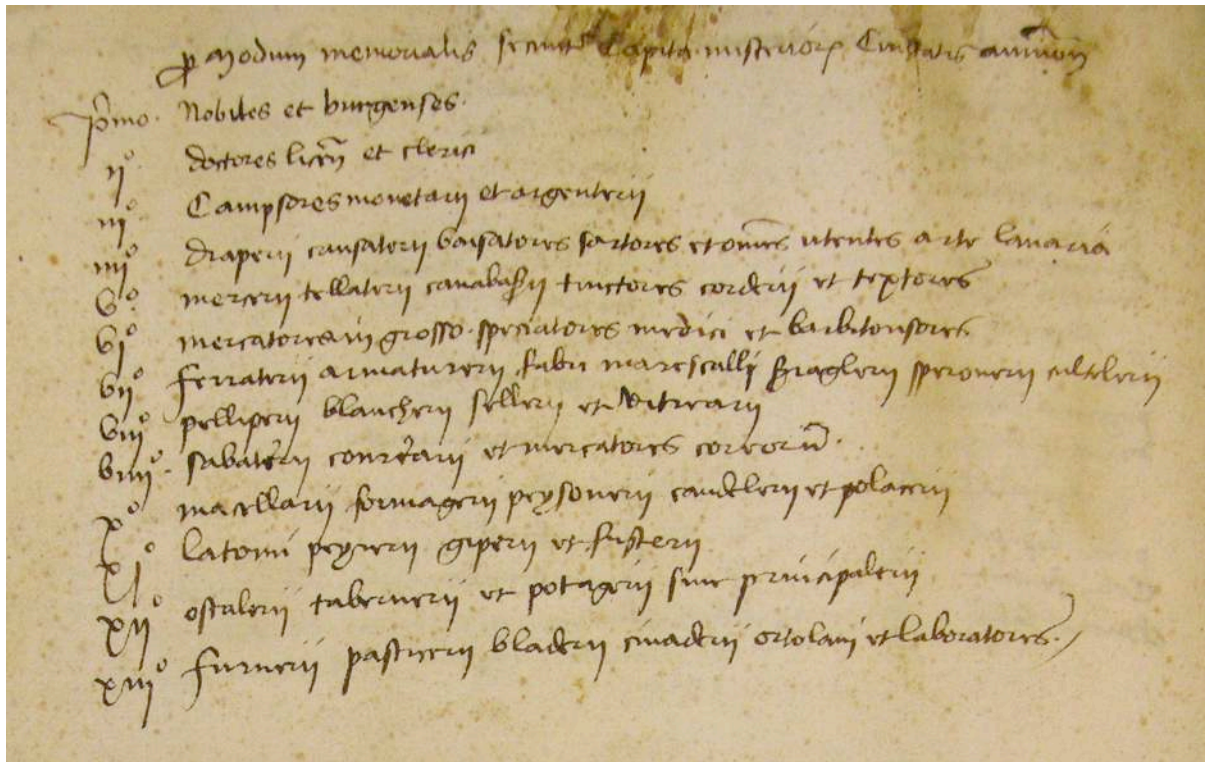 p modum memorialis secuntr Capita misterior Civitatis avinion
p̄imo. Nobiles et burgenses.
ij° doctores licen̄ et clerici
iij° Campsores monetarij et argenterij
iiij° draperij caussaterij baissatores sartores et om̄es utentes arte lanaria
v° mercerij tellaterij canabasserij tinctores corderij et textores
vj° mercatores in grosso speciatores medici et barbitonsores
vij° ferraterij armaturerij fabri marescalli speronerij cultelerij
viij° pelliperij blancherij sellerij et vitrearij
viiij° sabaterij conrearij et mercatores coreorū.
x° macellarij formagerij peysonerij candelerij et polacerij
xj° latomi peyrerij giperij et fusterij
xij° ostalerij tabernerij et potagerij sive principalerij
xiij° furnerij pasticerij bladerij civaderij ortolani et laboratores.